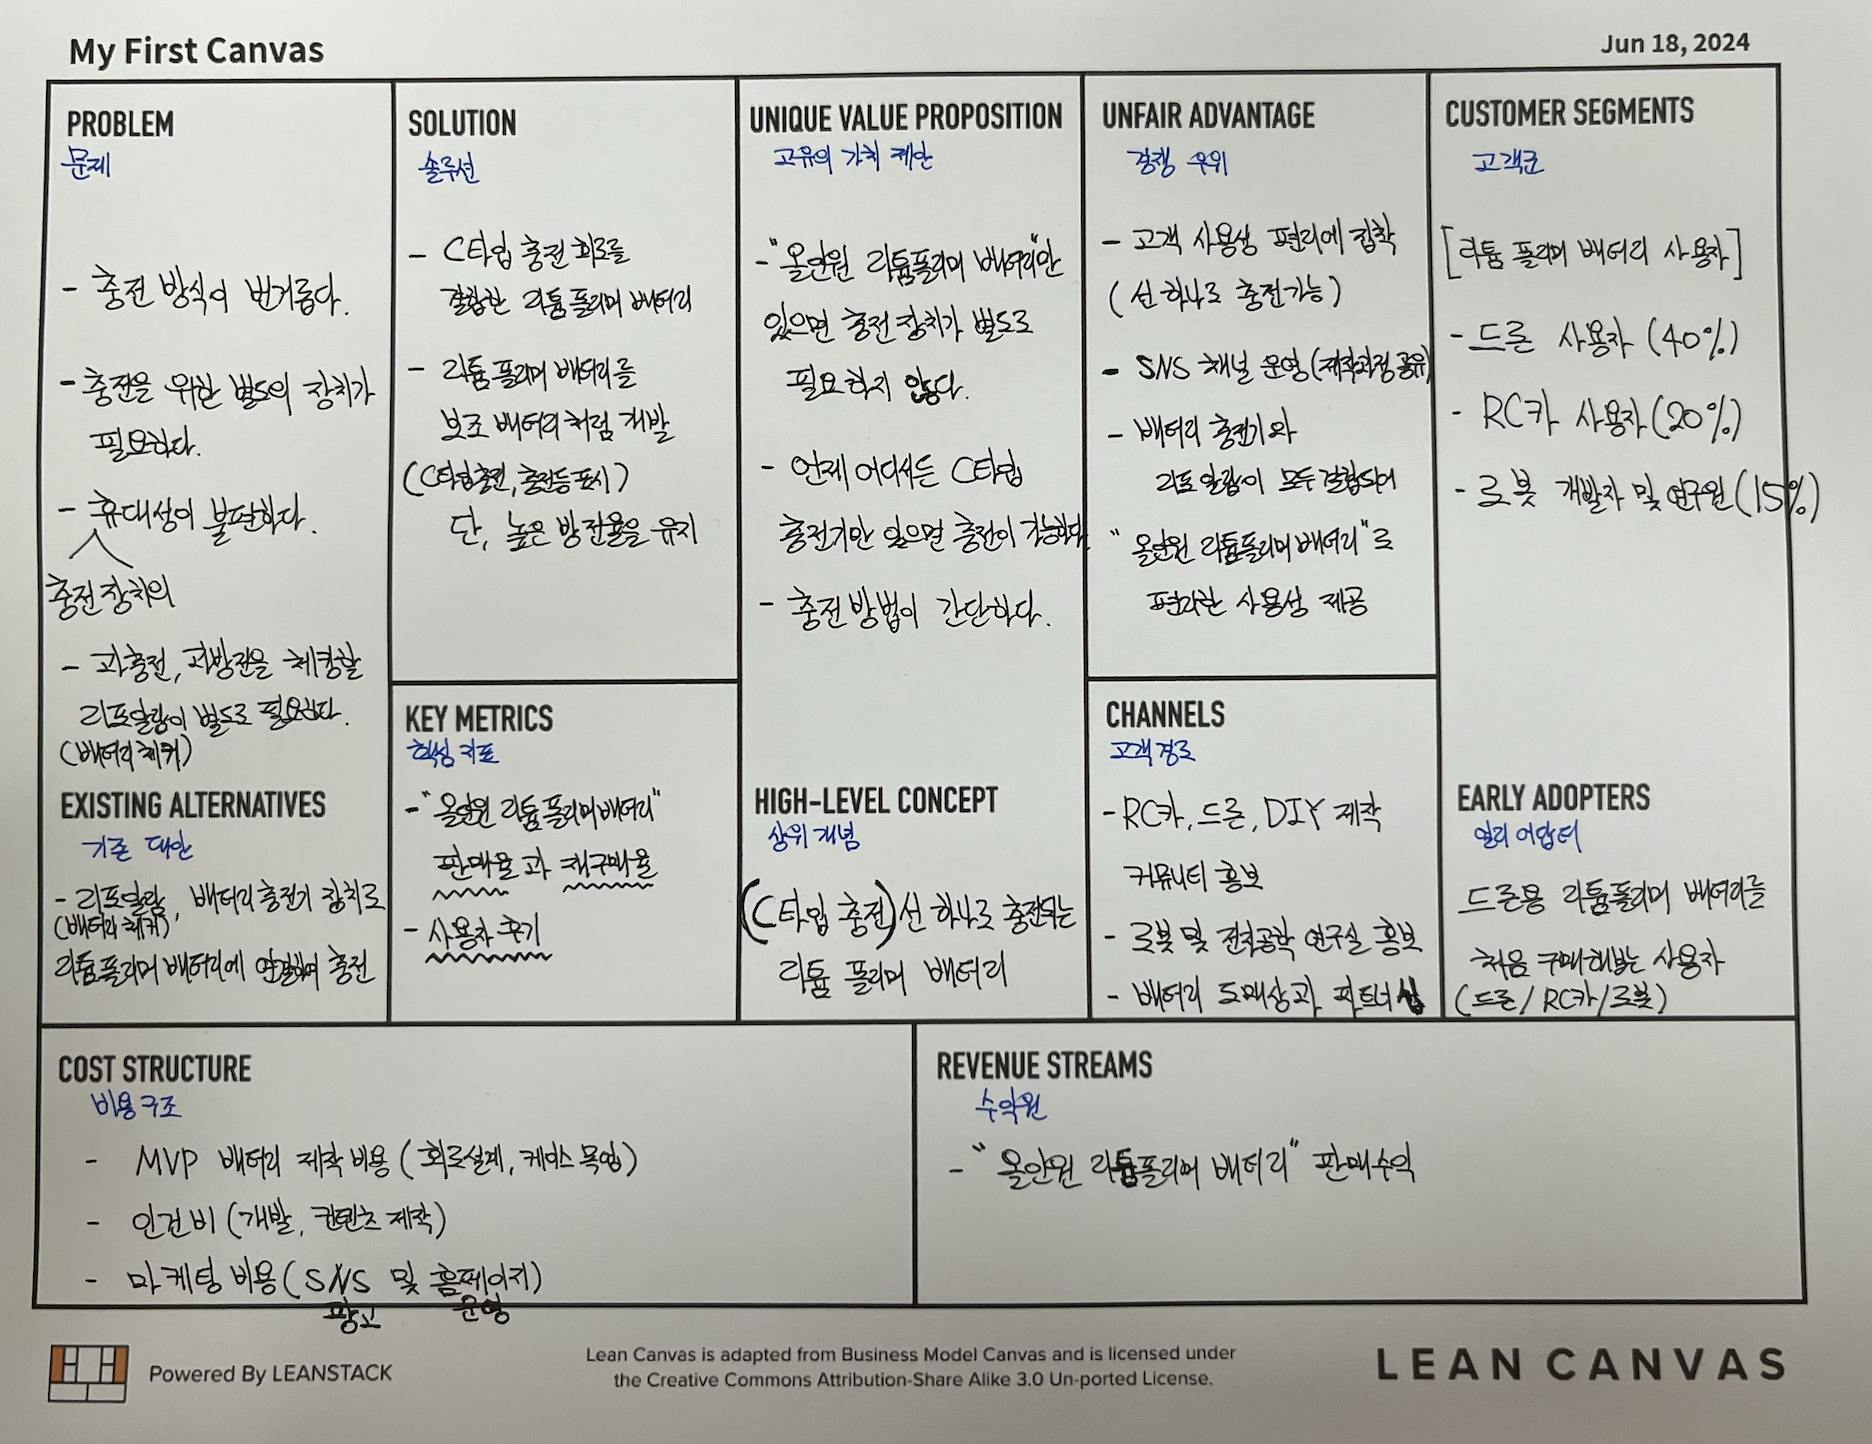 My First Canvas
Jun 18, 2024
PROBLEM
문제
- 충전 방식이 번거롭다.
- 충전을 위한 별도의 장치가
필요하다.
- 휴대성이 불편하다.
충전 장치의
- 과충전, 과방전을 체킹할
리포알람이 별도로 필요하다.
(배터리 체커)
EXISTING ALTERNATIVES
기존 대안
- 리포알람, 배터리 충전기 장치로
(배터리 체커)
리튬폴리머 배터리에 연결하여 충전
SOLUTION
솔루션
- C타입 충전 회로를
결합한 리튬 폴리머 배터리
- 리튬 폴리머 배터리를
보조 배터리처럼 개발
(C타입충전, 충전등 표시)
단, 높은 방전율을 유지
KEY METRICS
핵심 지표
- "올인원 리튬 폴리머 배터리"
판매율과 재구매율
- 사용자 후기
UNIQUE VALUE PROPOSITION
고유의 가치 제안
- "올인원 리튬폴리머 배터리"만
있으면 충전 장치가 별도로
필요하지 않다.
- 언제 어디서든 C타입
충전기만 있으면 충전이 가능하다
- 충전 방법이 간단하다.
HIGH-LEVEL CONCEPT
상위 개념
(C타입 충전) 선 하나로 충전되는
리튬 폴리머 배터리
UNFAIR ADVANTAGE
경쟁 우위
- 고객 사용성 편리에 집착
(선 하나로 충전가능)
- SNS 채널 운영 (제작과정 공유)
- 배터리 충전기와
리포 알람이 모두 결합되어
"올인원 리튬폴리머 배터리"로
편리한 사용성 제공
CHANNELS
고객 경로
- RC카, 드론, DIY 제작
커뮤니티 홍보
- 로봇 및 전자공학 연구실 홍보
- 배터리 도매상과 파트너쉽
CUSTOMER SEGMENTS
고객군
[리튬 폴리머 배터리 사용자]
- 드론 사용자 (40%)
- RC카 사용자 (20%)
- 로봇 개발자 및 연구원 (15%)
EARLY ADOPTERS
얼리 어답터
드론용 리튬폴리머 배터리를
처음 구매해보는 사용자
(드론/RC카/로봇)
COST STRUCTURE
비용 구조
- MVP 배터리 제작 비용 (회로설계, 케이스 목업)
- 인건비 (개발, 컨텐츠 제작)
- 마케팅 비용 (SNS 및 홈페이지)
광고 운영
REVENUE STREAMS
수익원
- "올인원 리튬폴리머 배터리" 판매수익
Powered By LEANSTACK
Lean Canvas is adapted from Business Model Canvas and is licensed under
the Creative Commons Attribution-Share Alike 3.0 Un-ported License.
LEAN CANVAS